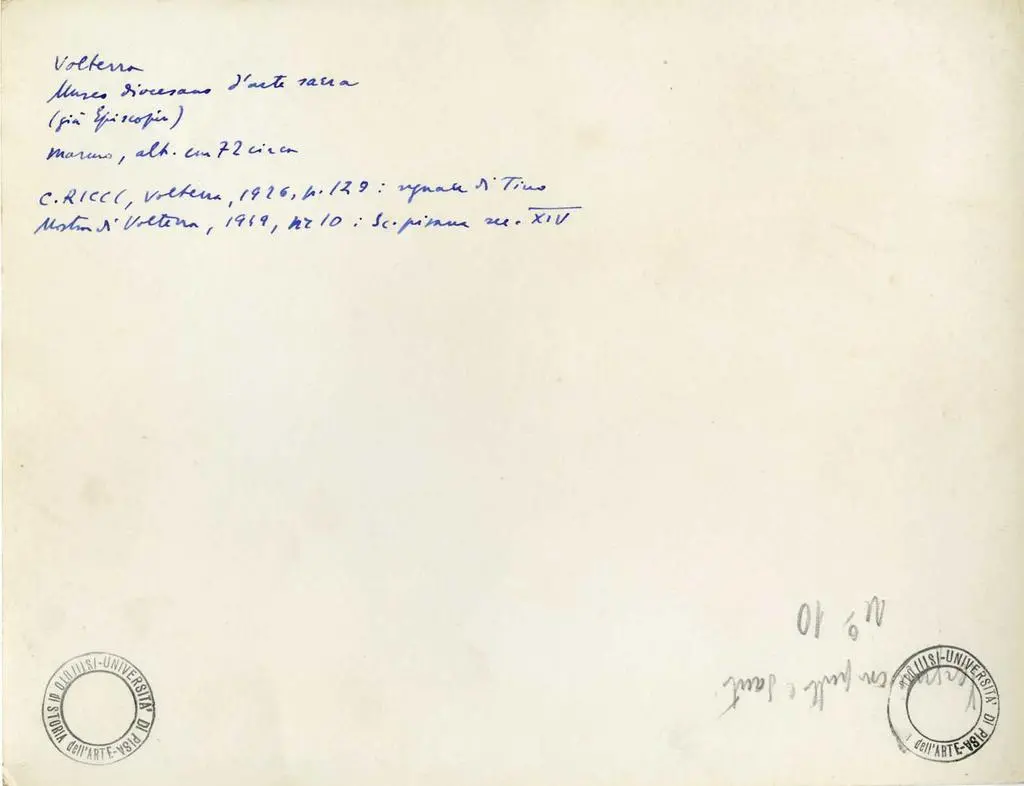 Volterra
Museo diocesano d'arte sacra
(già Episcopio)
marmo, alt. cm 72 circa
C. RICCI, Volterra, 1926, p. 129: seguace di Tino
Mostra di Volterra, 1949, nr 10: Sc. pisana sec. XIV
N° 10
con putto e santi
ISTITUTO DI STORIA dell'ARTE-UNIVERSITA' DI PISA
ISTITUTO dell'ARTE-UNIVERSITA' DI PISA